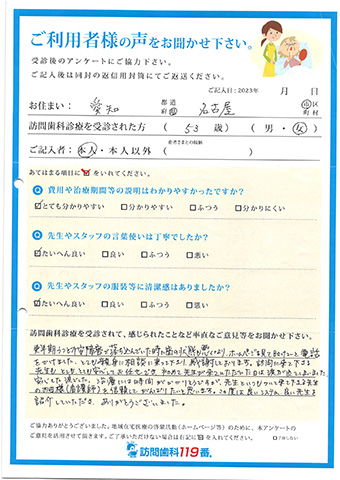 ご利用者様の声をお聞かせ下さい。
受診後のアンケートにご協力下さい。
ご記入後は同封の返信用封筒にてご返送ください。
ご記入日：2023年　月　日
お住まい：愛知 都道府県 名古屋 市区町村
訪問歯科診療を受診された方（53歳）（男・女）
ご記入者：本人・本人以外（患者さまとの続柄　）
あてはまる項目に✓をいれてください。
Q 費用や治療期間等の説明はわかりやすかったですか？
☑とても分かりやすい □分かりやすい □ふつう □分かりにくい
Q 先生やスタッフの言葉使いは丁寧でしたか？
☑たいへん良い □良い □ふつう □悪い
Q 先生やスタッフの服装等に清潔感はありましたか？
☑たいへん良い □良い □ふつう □悪い
訪問歯科診療を受診されて、感じられたことなど率直なご意見等をお聞かせ下さい。
ホームページを見て 電話
をかけました。とても親身に相談に乗って下さり、感謝しております。訪問に来て下さる
先生も とても
治療には時間がかかりそうですが、先生といっしょに
がんばりたいと思います。この度は良い 良い先生を
紹介していただき、ありがとうございました。
ご協力ありがとうございました。地域在宅医療の啓蒙活動（ホームページ等）のために、本アンケートの
ご意見を活用させて頂きます。ご了承いただけない場合は右記に✓を入れてください。 □了承しない
訪問歯科119番。